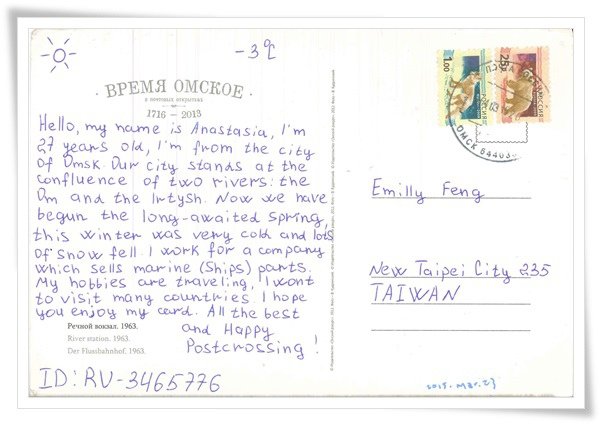 -3 °C
· ВРЕМЯ ОМСКОЕ ·
в почтовых открытках
1716 – 2013
Hello, my name is Anastasia, I'm
27 years old, I'm from the city
of Omsk. Our city stands at the
confluence of two rivers: the
Om and the Irtysh. Now we have
begun the long-awaited spring,
this winter was very cold and lots
of snow fell. I work for a company
which sells marine (ships) parts.
My hobbies are traveling, I want
to visit many countries. I hope
you enjoy my card. All the best
and Happy
Postcrossing!
Речной вокзал. 1963.
River station. 1963.
Der Flussbahnhof. 1963.
ID: RU-3465776
1.00
РОССИЯ
РОССИЯ
ОМСК 64403
Emilly Feng
New Taipei City 235
TAIWAN
2015. Mar. 23